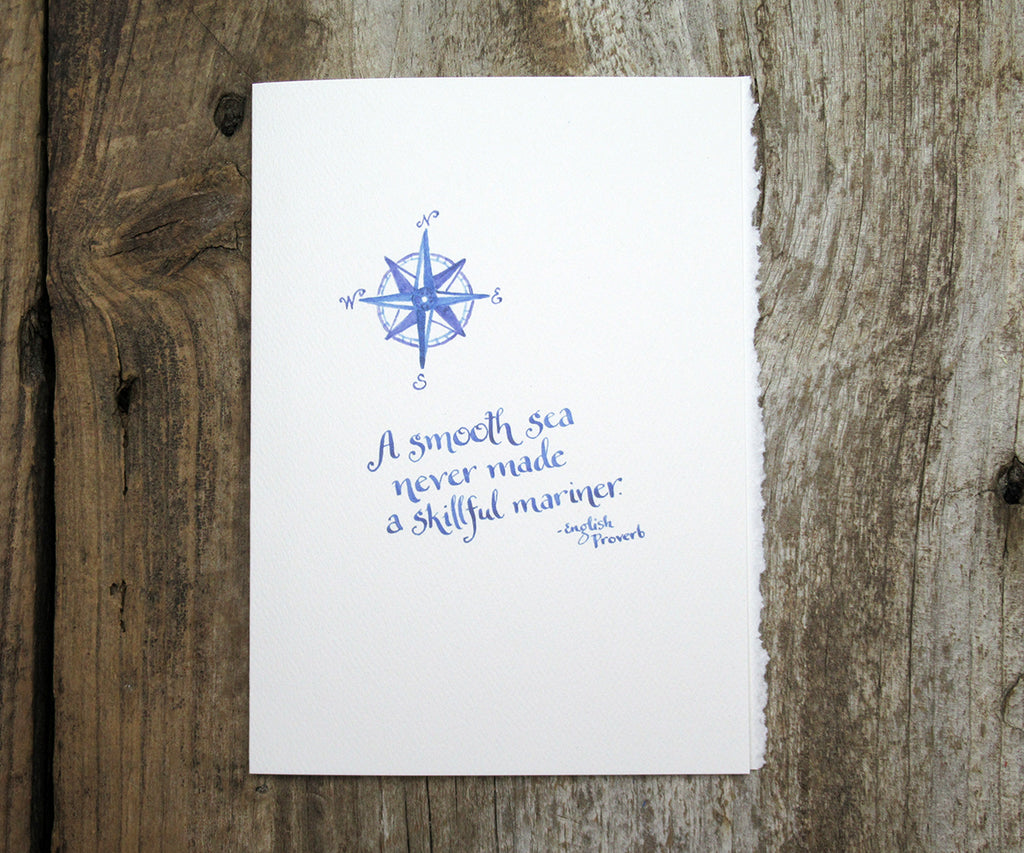 N
W E
S
A smooth sea
never made
a skillful mariner.
-English
Proverb